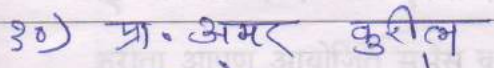 ३०) प्रा. अमर कुरील